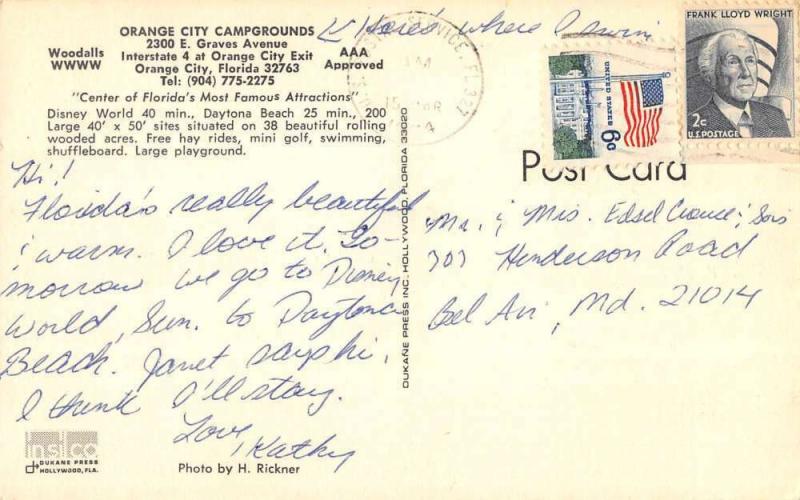 ORANGE CITY CAMPGROUNDS
2300 E. Graves Avenue
Interstate 4 at Orange City Exit
Orange City, Florida 32763
Tel: (904) 775-2275
Woodalls
WWWW
AAA
Approved
"Center of Florida's Most Famous Attractions"
Disney World 40 min., Daytona Beach 25 min., 200
Large 40' x 50' sites situated on 38 beautiful rolling
wooded acres. Free hay rides, mini golf, swimming,
shuffleboard. Large playground.
Here's where I swim
Hi!
Florida's really beautiful
& warm. I love it. To-
morrow we go to Disney
World, Sun. to Daytona
Beach. Janet says hi.
I think I'll stay.
Love,
Kathy
insico
DUKANE PRESS
HOLLYWOOD, FLA.
Photo by H. Rickner
DUKANE PRESS INC. HOLLYWOOD, FLORIDA 33020
SERVICE, FL 327
AM
UNITED STATES
6c
FRANK LLOYD WRIGHT
2c
U.S. POSTAGE
Post Card
Mr. & Mrs. Edsel & Sons
303 Henderson Road
Bel Air, Md. 21014